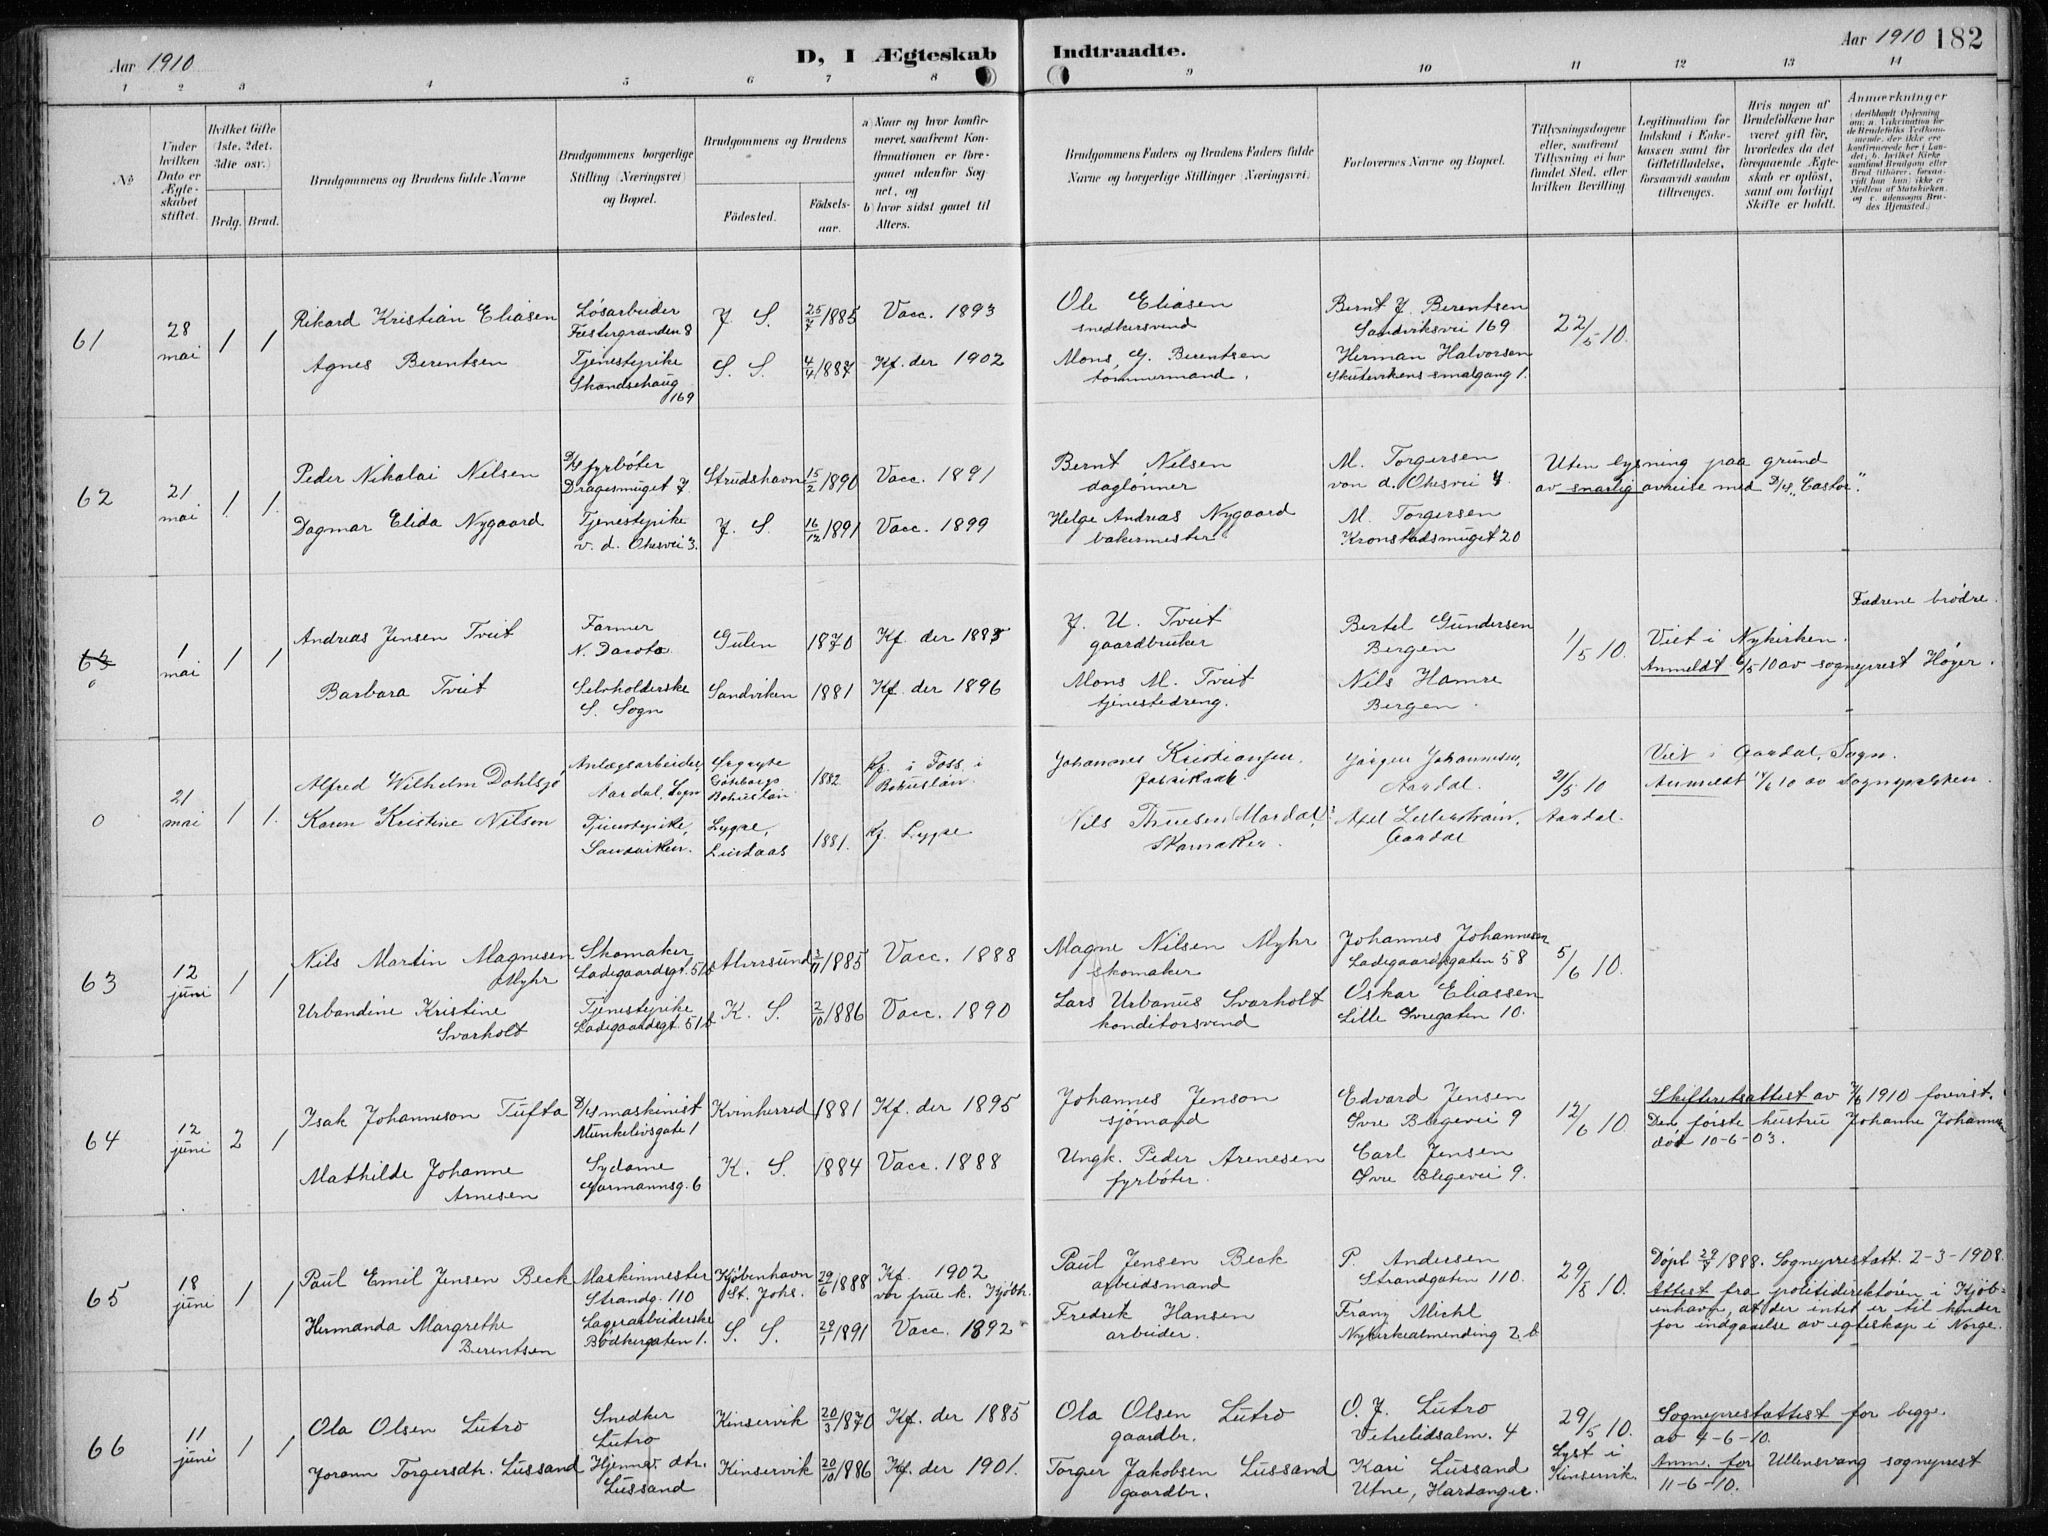 Aar 1910
D, I Ægteskab
Indtraadte.
Aar 1910 182
1 2 3 4 5 6 7 8 9 10 11 12 13 14
No
Under hvilken Dato er Ægteskabet stiftet.
Hvilket Gifte (1ste, 2det, 3die osv.)
Brdg. Brud.
Brudgommens og Brudens fulde Navne
Brudgommens borgerlige Stilling (Næringsvei) og Bopæl.
Brudgommens og Brudens
Födested.
Födselsaar.
a) Naar og hvor konfirmeret, saafremt Konfirmationen er foregaaet udenfor Sognet, og
b) hvor sidst gaaet til Alters.
Brudgommens Faders og Brudens Faders fulde Navne og borgerlige Stillinger (Næringsvei)
Forlovernes Navne og Bopæl.
Tillysningsdagene eller, saafremt Tillysning ei har fundet Sted, efter hvilken Bevilling
Legitimation for Indskud i Enkekassen samt for Giftetilladelse, forsaavidt saadan tiltrænges.
Hvis nogen af Brudefolkene har været gift för, hvorledes da det foregaaende Ægteskab er oplöst, samt om lovligt Skifte er holdt.
Anmærkninger
61
28 mai
1 1
Rikard Kristian Eliasen
Løsarbeider
Festergranden 8
J S.
25/7 1885
Vacc. 1893
Ole Eliasen
snedkersvend
Bernt J. Berentsen
Sandviksvei 169
22/5 10.
Agnes Berentsen
Tjenestepike
Skandsehaug 169
S. S.
4/4 1884
Kf. der 1902
Mons G. Berentsen
tømmermand.
Herman Halvorsen
Skutevikens smalgang 1.
62
21 mai
1 1.
Peder Nikolai Nilsen
D/S fyrbøter
Dragesmuget 7.
Strudshavn
15/2 1890
Vacc. 1891
Bernt Nilsen
daglønner
M. Torgersen
von d. Ohesvei 4.
Uten lysning paa grund
av snarlig avreise med D/S "Castor".
Dagmar Elida Nygaard
Tjenestepike
v. d. Ohesvei 3.
J. S.
16/12 1891
Vacc. 1899
Helge Andreas Nygaard
bakermester
M. Torgersen
Kronstadsmuget 20
Fædrene brødre.
63
0
1 mai
1 1
Andreas Jensen Tveit
Farmer
N. Dacota
Gulen
1870
Kf. der 1885
J. U. Tveit
gaardbruker
Bertel Gundersen
Bergen
1/5 10.
Viet i Nykirken.
Anmeldt 6/5 10 av sogneprest Høyer.
Barbara Tveit
Selvholderske
S. Sogn
Sandviken
1881
Kf. der 1896
Mons M. Tveit
tjenestedreng.
Nils Hamre
Bergen.
0
21 mai
1 1.
Alfred Wilhelm Dahlsjö
Anlægsarbeider,
Aardal, Sogn
Göteborgs
Bohuslän
1882
Kf. i Foss i
Bohuslän.
Johannes Kristiansen
Jørgen Johannesen,
Aardal.
21/5 10
Aardal.
Viet i Aardal, Sogn.
Anmeldt 14/6 10 av Sognepresten.
Karen Kristine Nilsen
Tjenestepike,
Sandviken.
Lygre,
Lindaas
1881.
Kf. Lygre
Nils Thuesen (Mardal)
Skomaker.
Axel
Aardal
63
12 juni
1 1
Nils Martin Magnesen
Myhr
Skomaker
Ladegaardsgt. 51b
Alversund
1885
Vacc. 1888
Magne Nilsen Myhr
skomaker
Johannes Johannesen
Ladegaardsgaten 58
5/6 10.
Urbandine Kristine
Svarholt
Tjenestepike
Ladegaardsgt. 51b
K. S.
2/10 1886
Vacc. 1890
Lars Urbanus Svarholt
konditorsvend
Oskar Eliassen
Lille Øvregaten 10.
64
12 juni
2 1
Isak Johanneson Tufta
D/S maskinist
Munkelivsgate 1
Kvinherred
1881
Kf. der 1895
Johannes Jenson
sjømand
Edvard Jensen
Øvre Blegevei 9
12/6 10.
Skifteretsattest av 7/6 1910 forevist.
Den første hustru Johanne Johannes
død 10-6-03.
Mathilde Johanne
Arnesen
Sydame
Gørmannsg. 6
K. S.
1884
Vacc. 1888
Ungk. Peder Arenesen
fyrbøter.
Carl Jensen
Øvre Blegevei 9.
65
18 juni
1 1
Paul Emil Jensen Beck
Maskinmester
Strandg. 110
Kjøbenhavn
St. Johs.
29/6 1888
Kf. 1902
vor frue k. Kjøbh.
Paul Jensen Beck
arbeidsmand
P. Andersen
Strandgaten 110.
29/5 10.
Døpt 29/7 1888. Sogneprestatt. 2-3-1908.
Attest fra politidirektøren i Kjøb-
enhavn, at der intet er til hinder
for indgaaelse av egteskap i Norge.
Hermanda Margrethe
Berentsen
Lagerarbeiderske
Bødkergaten 1.
S. S.
29/1 1891
Vacc. 1892
Fredrik Hansen
arbeider.
Franz Michl
Nykirkealmending 2b
66
11 juni
1 1
Ola Olsen Lutro
Snedker
Lutro
Kinservik
20/3 1870
Kf. der 1885
Ola Olsen Lutro
gaardbr.
O. J. Lutro
Vetrelidsalm. 4
29/5 10.
Lyst i
Kinservik.
Sogneprestattest for begge.
av 4-6-10.
Anm. for Ullensvang sogneprest
11-6-10.
Jorann Torgersdtr. Lussand
Hjemmev. dtr.
Lussand
Kinservik
20/10 1886
Kf. der 1901.
Torger Jakobsen Lussand
gaardbr.
Kari Lussand
Utne, Hardanger.